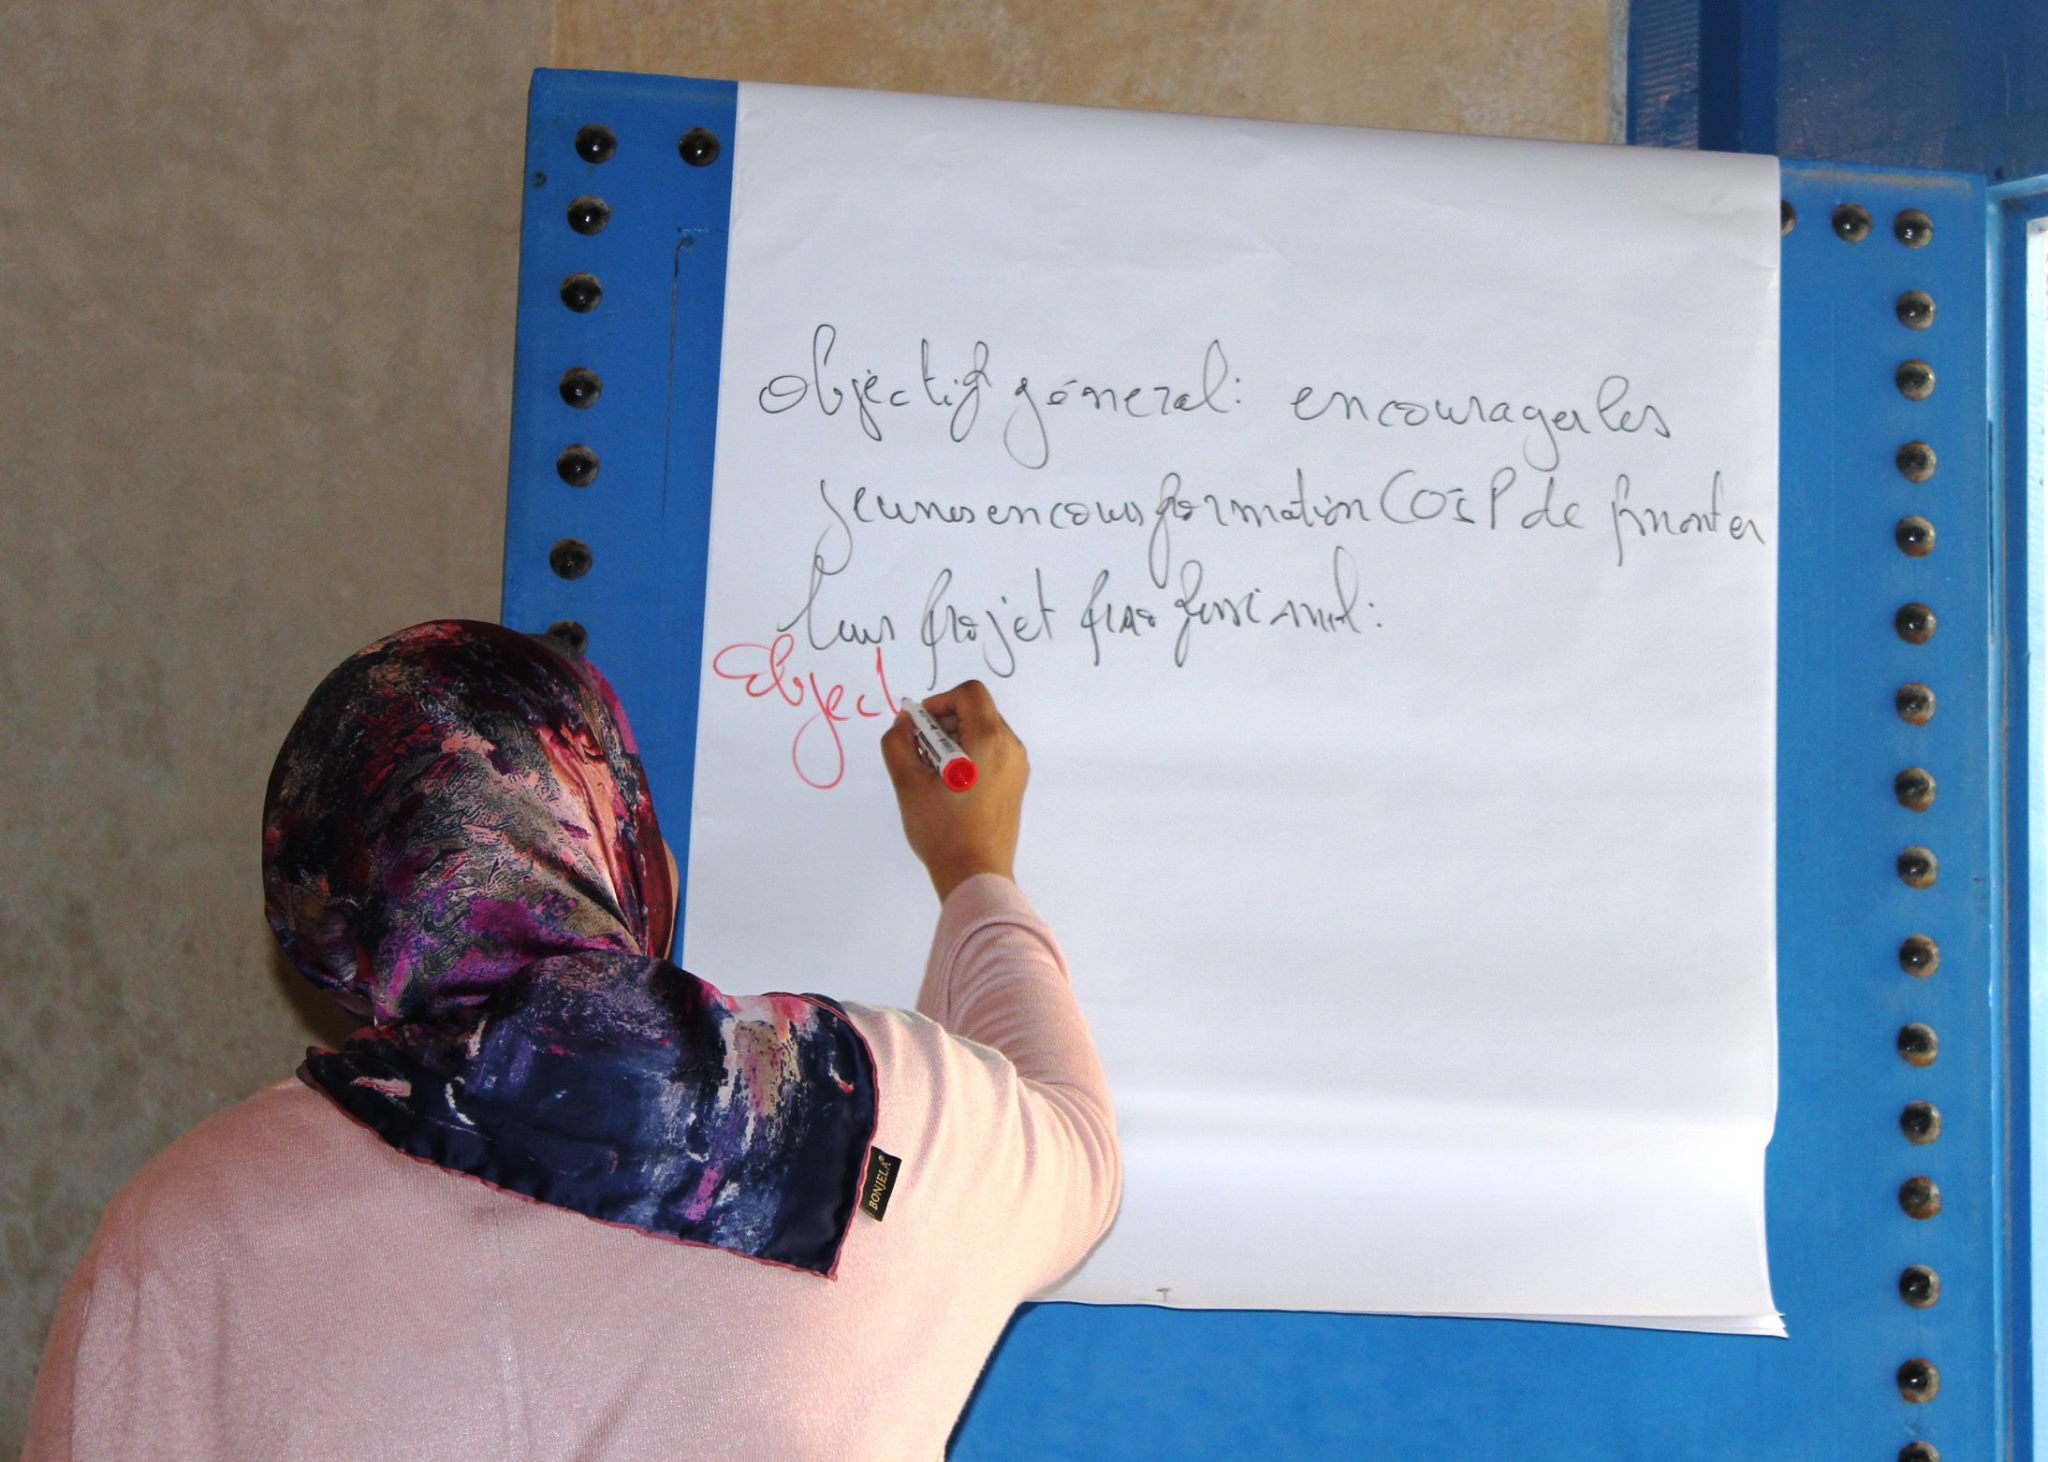 Objectif général: encourager les
jeunes en cours formation COIP de monter
leur projet professionnel:
Object
BONJELA®